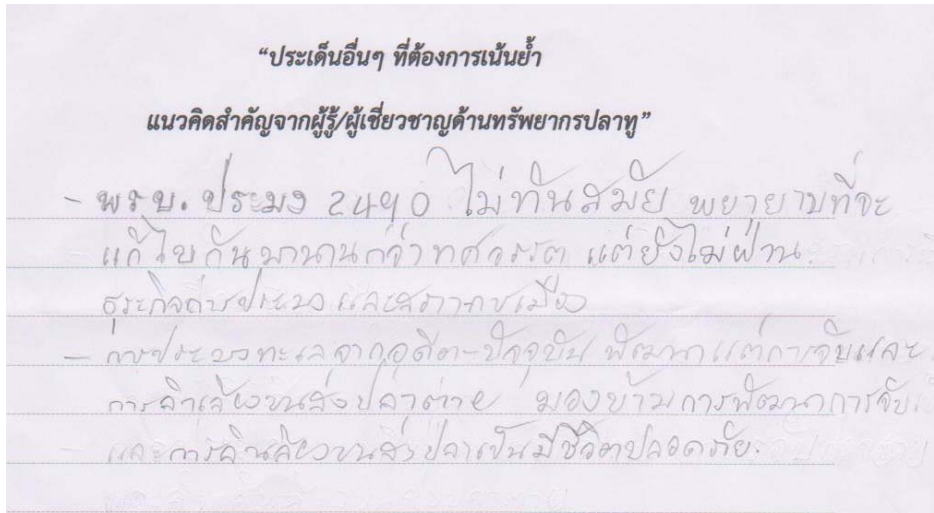 “ประเด็นอื่นๆ ที่ต้องการเน้นย้ำ
แนวคิดสำคัญจากผู้รู้/ผู้เชี่ยวชาญด้านทรัพยากรปลาทู”
- พรบ. ประมง 2490 ไม่ทันสมัย พยายามที่จะ
แก้ไขกันมานานกว่าทศวรรต แต่ยังไม่ผ่าน
ธุระกิจการประมง และสภาการเมือง
- การประมงทะเลจากอดีต-ปัจจุบัน พัฒนาแต่การจับและ
การลำเลียงขนส่งปลาตาย มองข้ามการพัฒนาการจับ
และการลำเลียงขนส่งปลาเป็นมีชีวิตปลอดภัย.